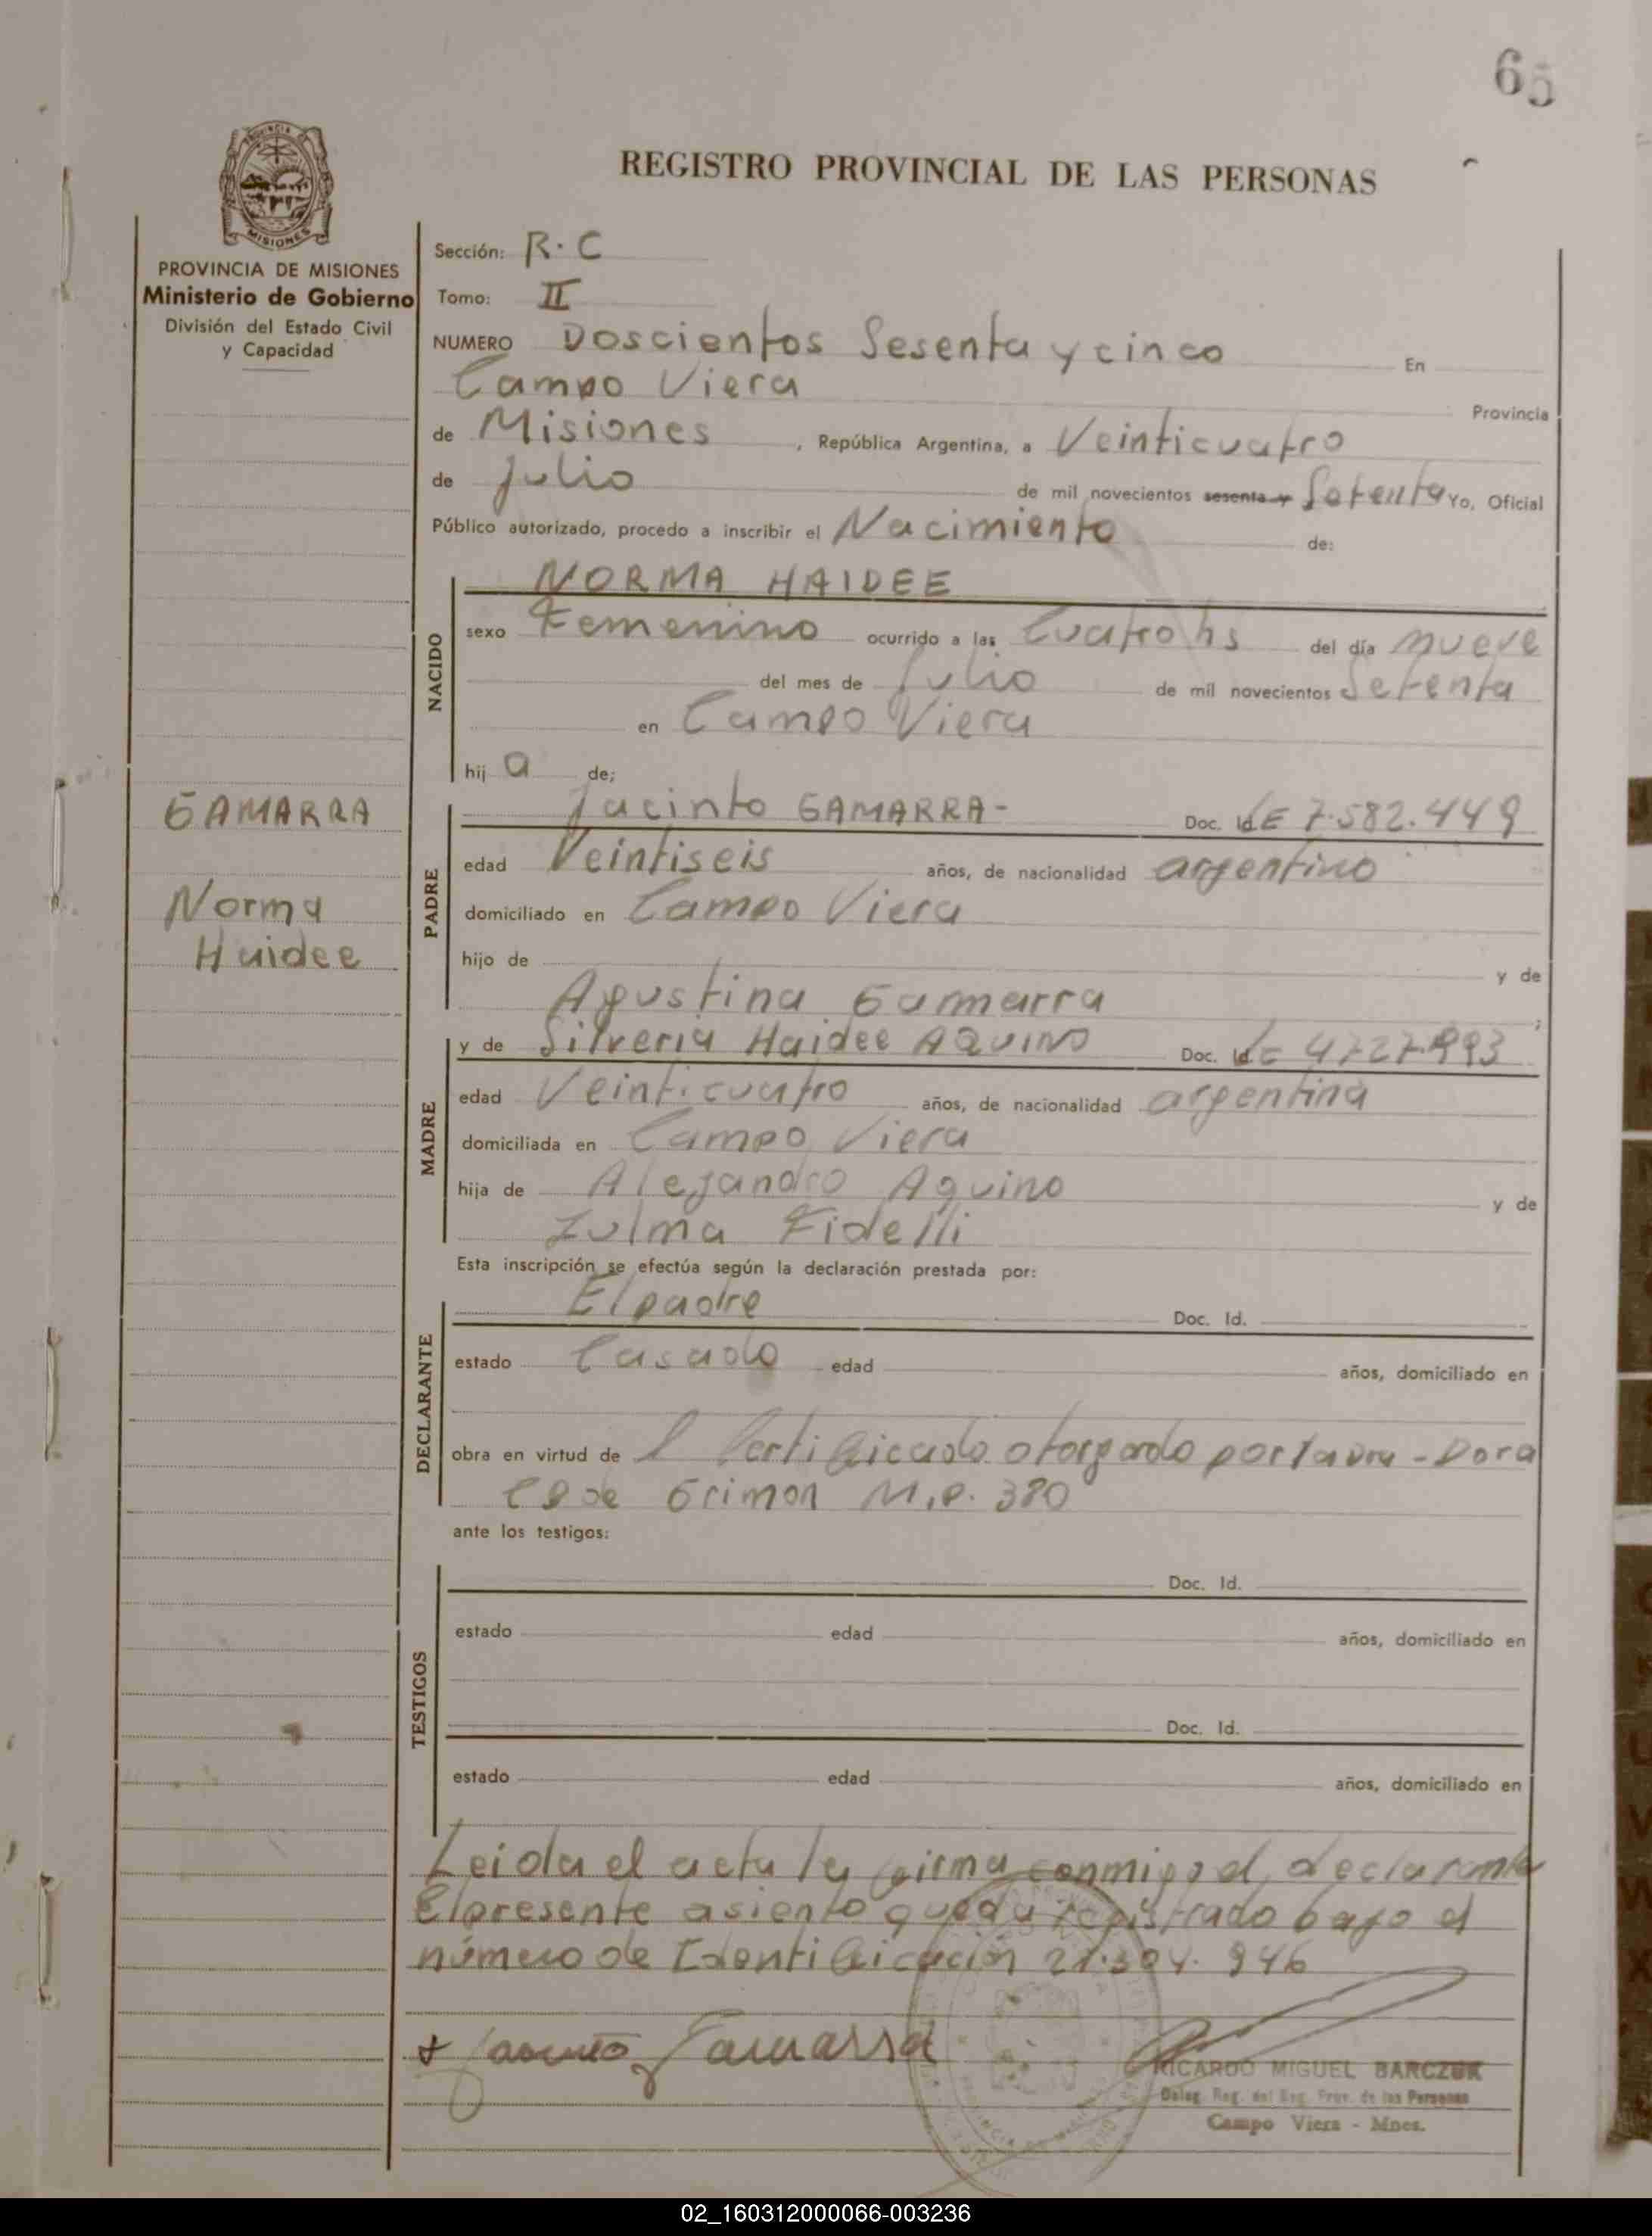 65
REGISTRO PROVINCIAL DE LAS PERSONAS
MISIONES
PROVINCIA DE MISIONES
Ministerio de Gobierno
División del Estado Civil
y Capacidad
Sección: R. C
Tomo: II
NUMERO Doscientos Sesenta y cinco En
Campo Viera Provincia
de Misiones, República Argentina, a Veinticuatro
de Julio de mil novecientos sesenta y Setenta Yo, Oficial
Público autorizado, procedo a inscribir el Nacimiento de:
NACIDO
NORMA HAIDEE
sexo Femenino ocurrido a las Cuatro hs del día nueve
del mes de Julio de mil novecientos Setenta
en Campo Viera
hij a de;
GAMARRA
Norma
Haidee
PADRE
Jacinto GAMARRA- Doc. Id. LE 7.582.449
edad Veintiseis años, de nacionalidad argentino
domiciliado en Campo Viera
hijo de y de
Agustina Gamarra;
MADRE
y de Silveria Haidee AQUINO Doc. Id.
edad Veinticuatro años, de nacionalidad argentina
domiciliada en Campo Viera
hija de Alejandro Aquino y de
Zulma Fidelli
Esta inscripción se efectúa según la declaración prestada por:
DECLARANTE
El padre Doc. Id.
estado Casado edad años, domiciliado en
obra en virtud de l Certificado otorgado por la Dra - Dora
de Grimon M.P. 380
ante los testigos:
TESTIGOS
Doc. Id.
estado edad años, domiciliado en
Doc. Id.
estado edad años, domiciliado en
Leida el acta la firma conmigo el declarante
El presente asiento queda registrado bajo el
número de Identificación 21.304.946
Jacinto Gamarra
RICARDO MIGUEL BARCZUK
Deleg. Reg. del Reg. Prov. de las Personas
Campo Viera - Mnes.
02_160312000066-003236